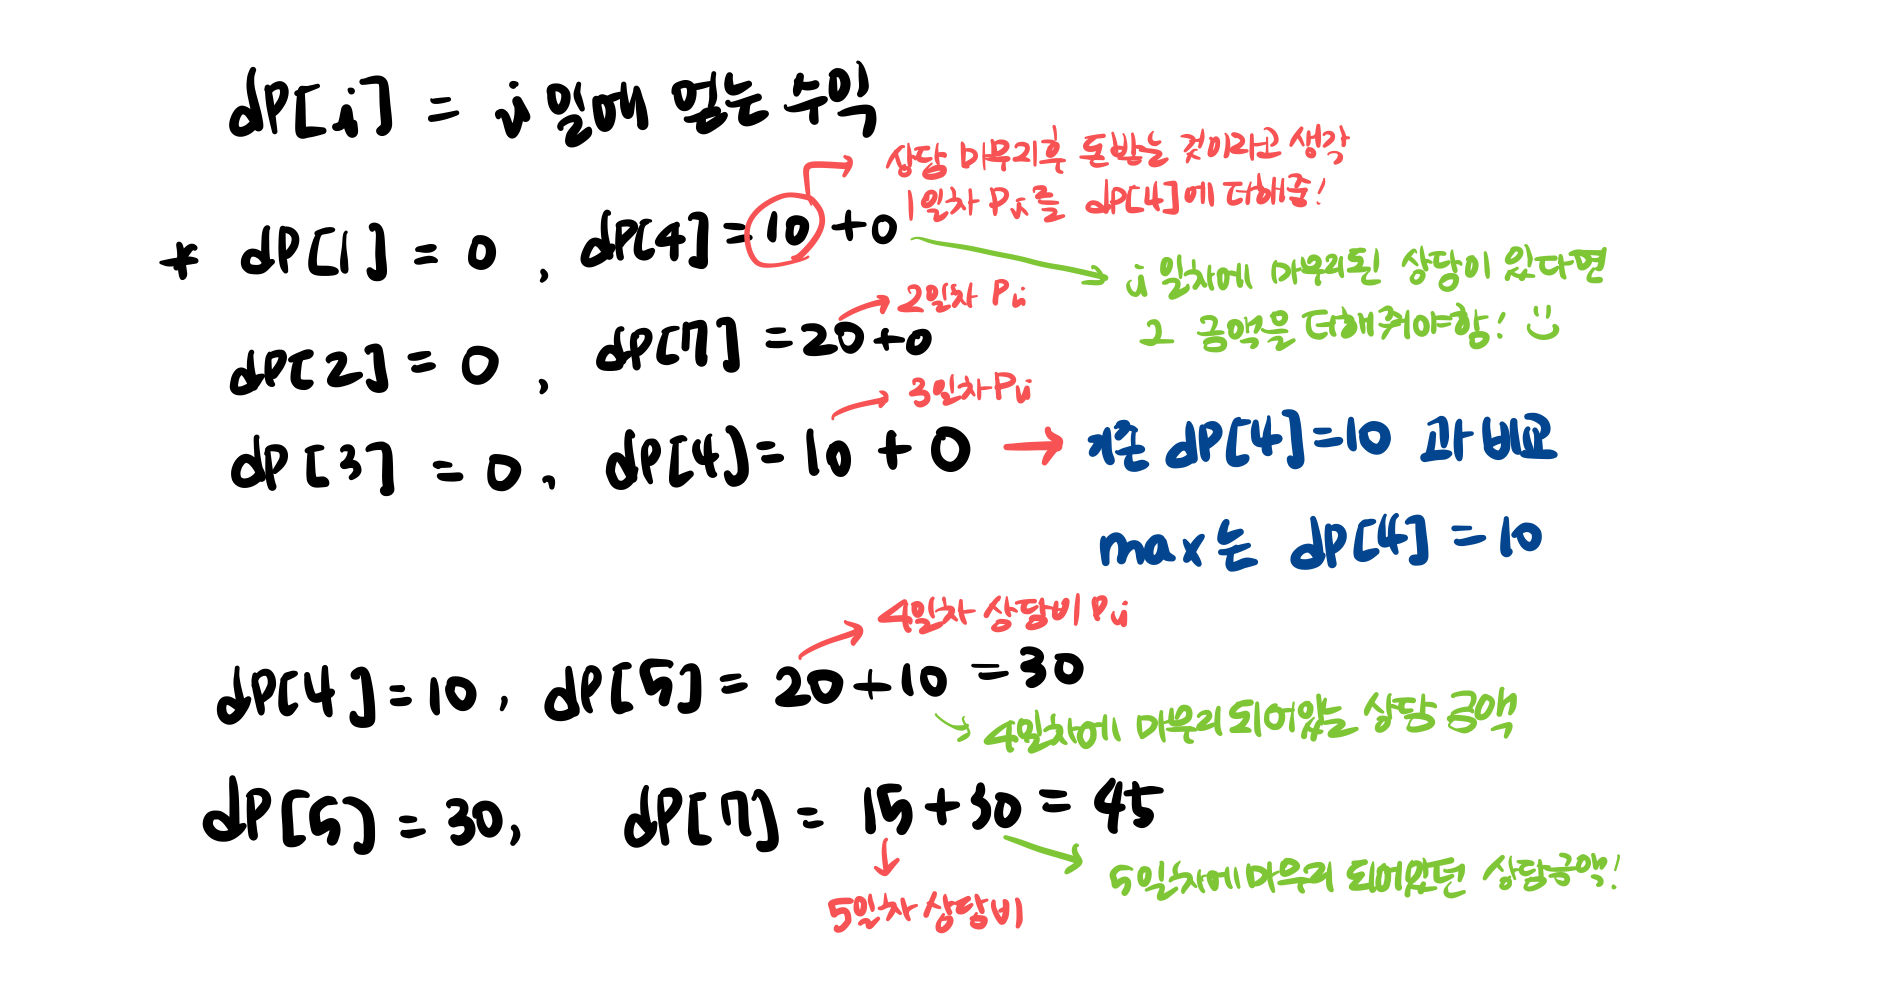 dP[i] = i 일에 얻는 수익
상담 마무리후 돈받는 것이라고 생각
1일차 Pi를 dP[4]에 더해줌!
* dP[1] = 0 , dP[4] = 10 + 0
i 일차에 마무리된 상담이 있다면
그 금액을 더해줘야함!
2일차 Pi
dP[2] = 0 , dP[7] = 20+0
3일차 Pi
dP[3] = 0 , dP[4] = 10 + 0 → 기존 dP[4]=10 과 비교
max는 dP[4] = 10
4일차 상담비 Pi
dP[4] = 10 , dP[5] = 20+10 = 30
4일차에 마무리되어있는 상담 금액
dP[5] = 30, dP[7] = 15+30 = 45
5일차에 마무리 되어있던 상담금액!
5일차 상담비